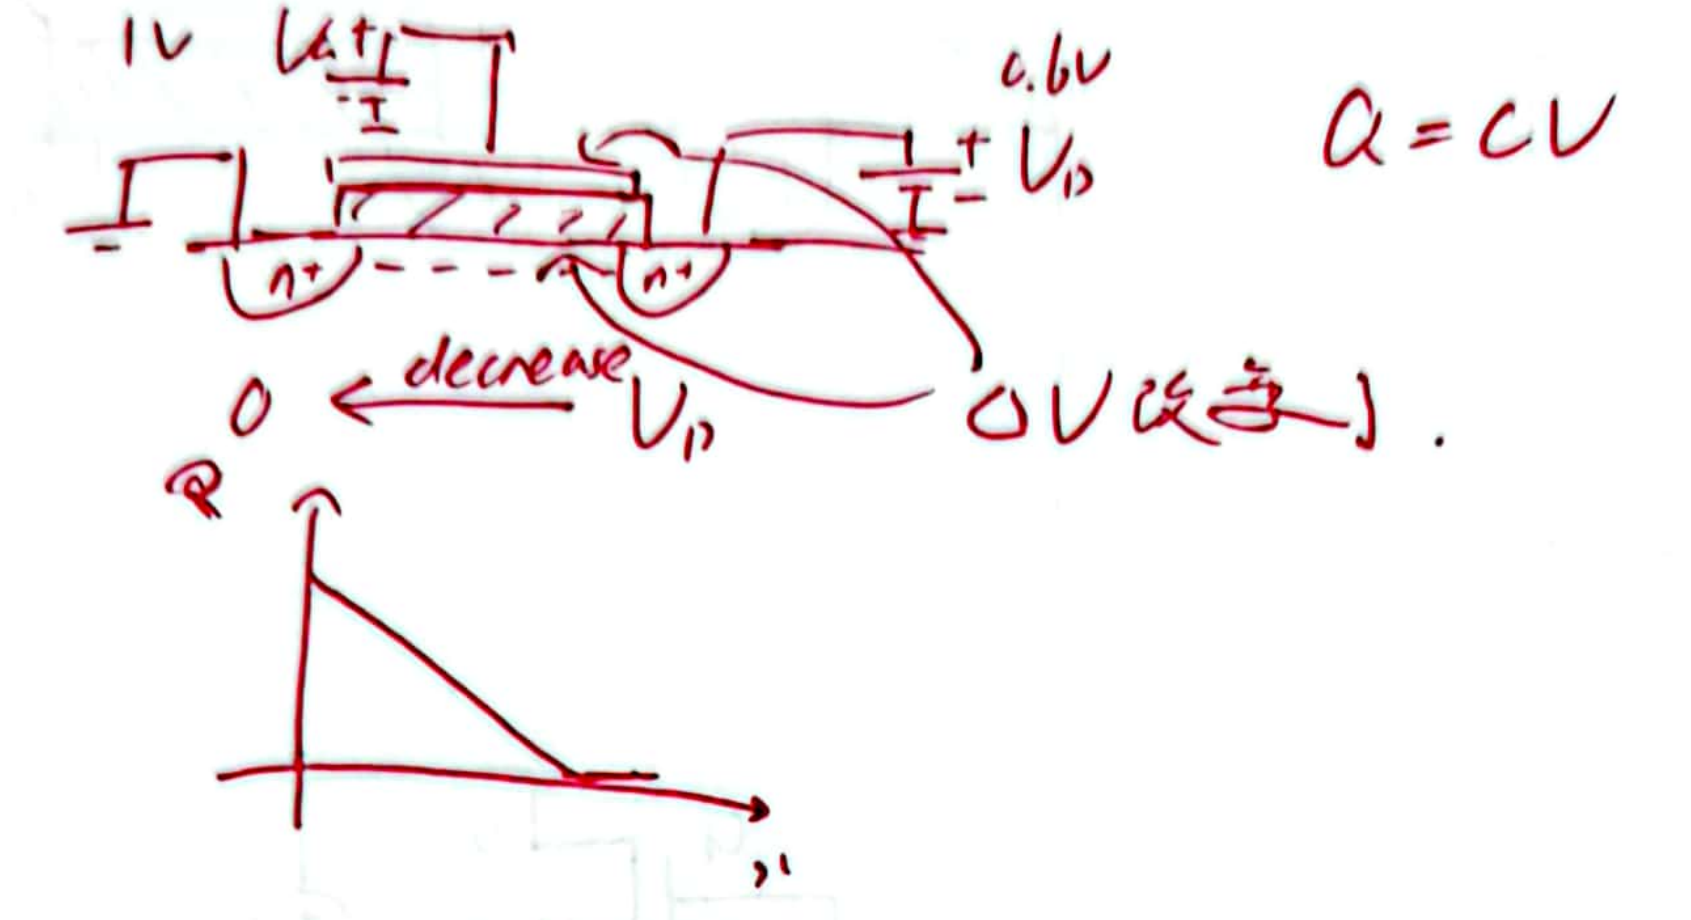 1V VG + 0.6V
- + VD Q = CV
-
n+ n+
0 ← decrease VD ΔV改变了.
Q
x